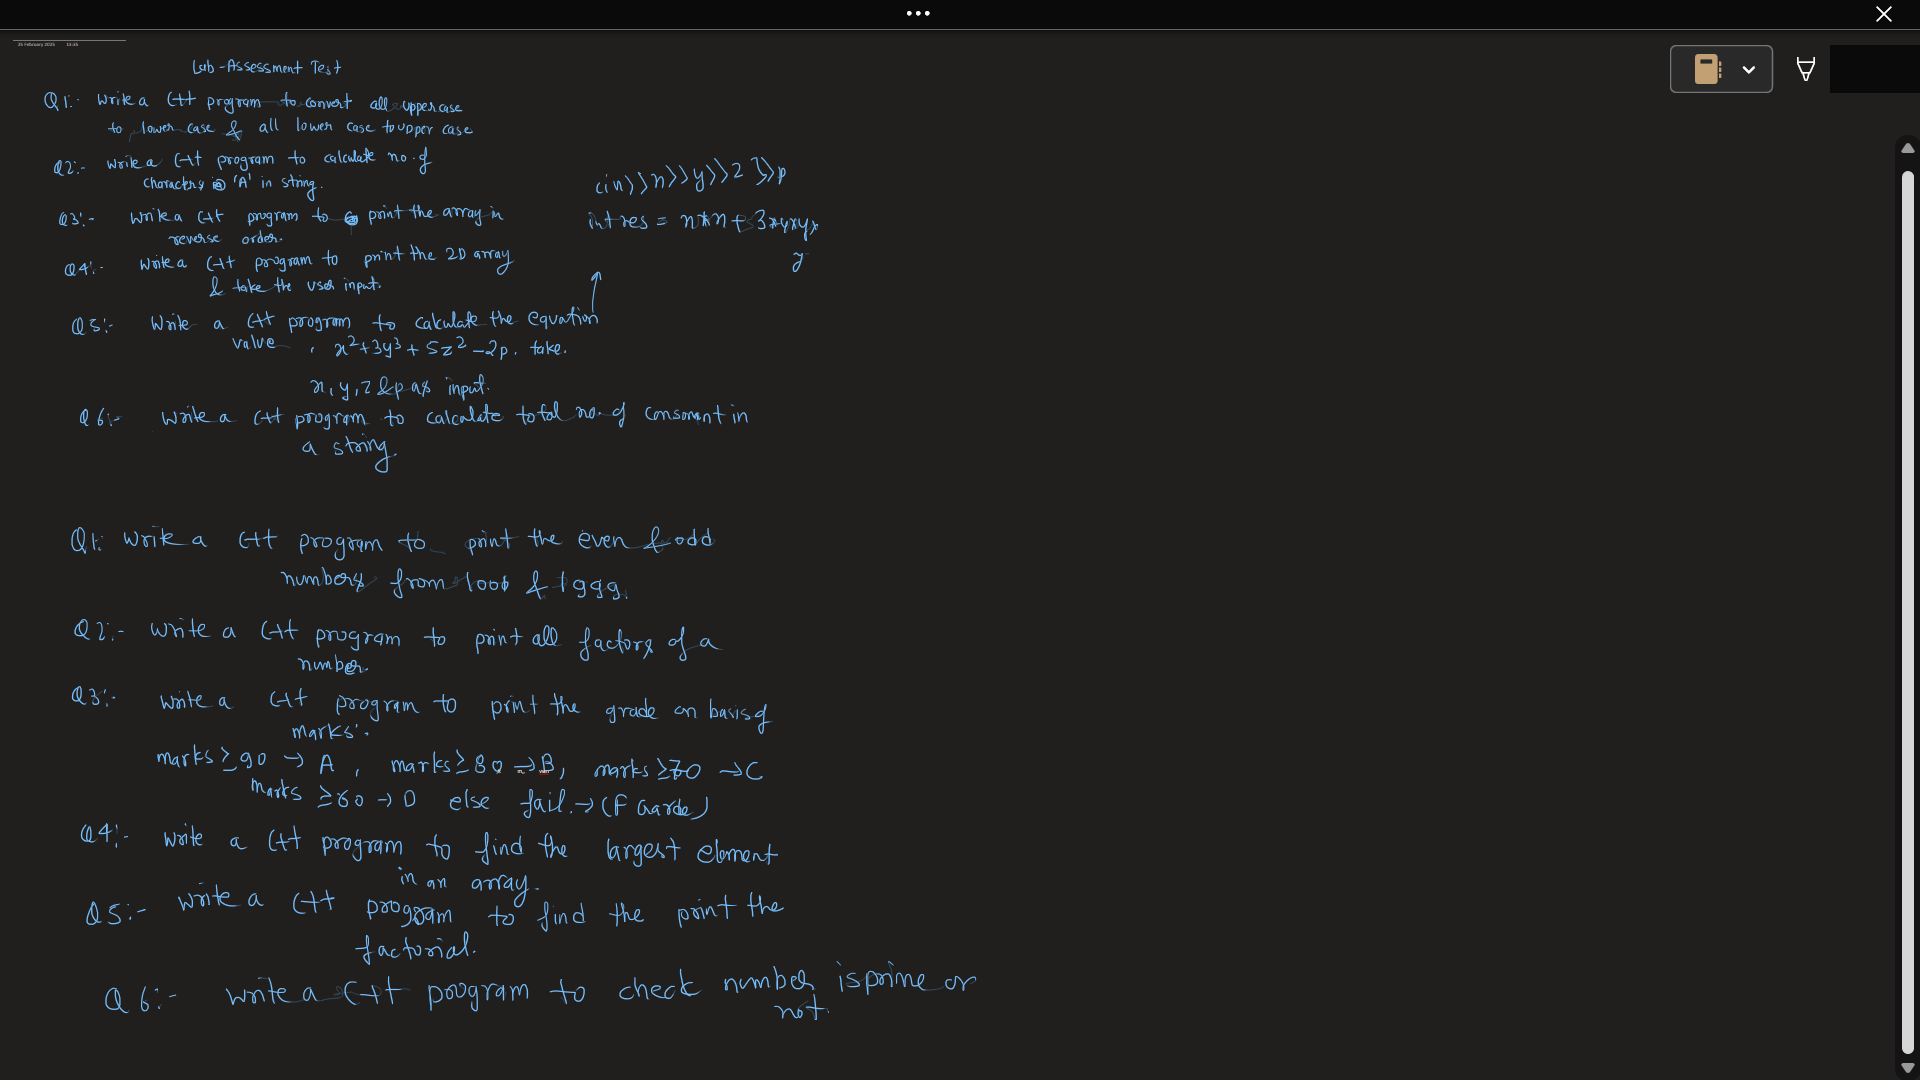 25 February 2025 10:35
Lab-Assessment Test
Q1:- Write a C++ program to convert all uppercase
to lower case & all lower case to upper case
Q2:- Write a C++ program to calculate no. of
characters 'A' in string.
Q3:- Write a C++ program to print the array in
reverse order.
Q4:- Write a C++ program to print the 2D array
& take the user input.
Q5:- Write a C++ program to calculate the equation
value , x²+3y³+5z²-2p. take.
x, y, z & p as input.
cin>>x>>y>>z>>p
int res = x*x+3*y*y*
y
Q6:- Write a C++ program to calculate total no. of consonant in
a string.
Q1: Write a C++ program to print the even & odd
numbers from 1000 & 1999.
Q2:- Write a C++ program to print all factors of a
number.
Q3:- Write a C++ program to print the grade on basis of
marks:-
marks ≥ 90 → A , marks ≥ 80 → B, marks ≥ 70 → C
marks ≥ 60 → D else fail. → (F Garde)
Q4:- Write a C++ program to find the largest element
in an array.
Q5:- Write a C++ program to find the print the
factorial.
Q6:- Write a C++ program to check number is prime or
not.